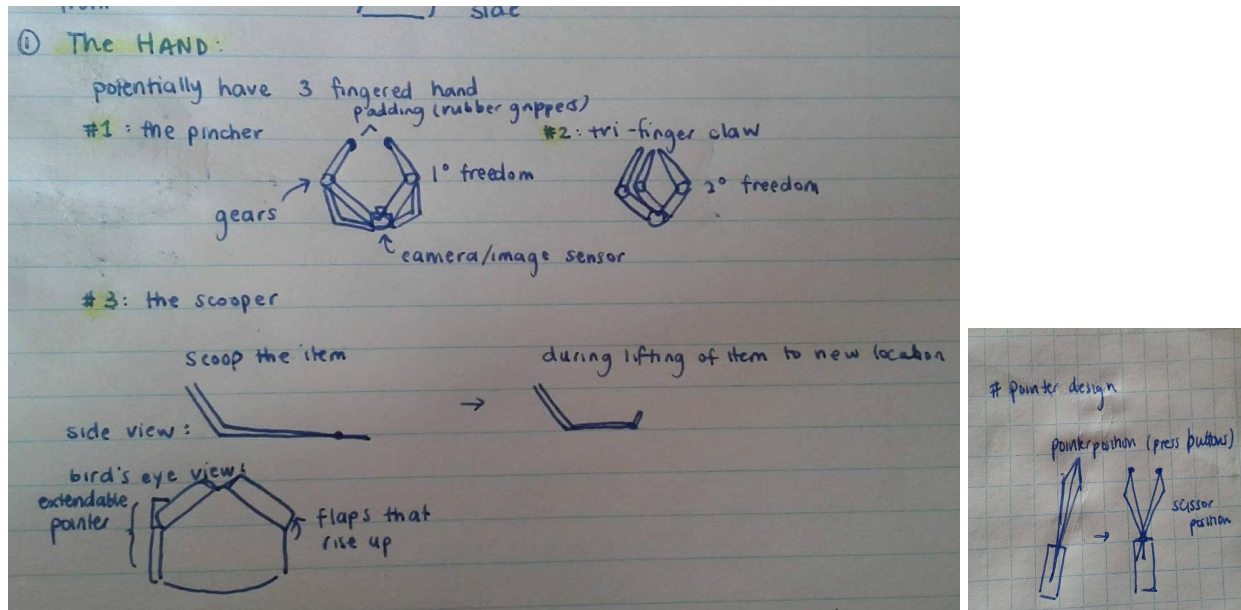 side
① The HAND:
potentially have 3 fingered hand
padding (rubber grippers)
#1: the pincher
#2: tri-finger claw
1° freedom
2° freedom
gears
camera/image sensor
#3: the scooper
scoop the item
during lifting of item to new location
side view:
bird's eye view:
extendable
pointer
flaps that
rise up
# pointer design
pointer position (press buttons)
scissor
position